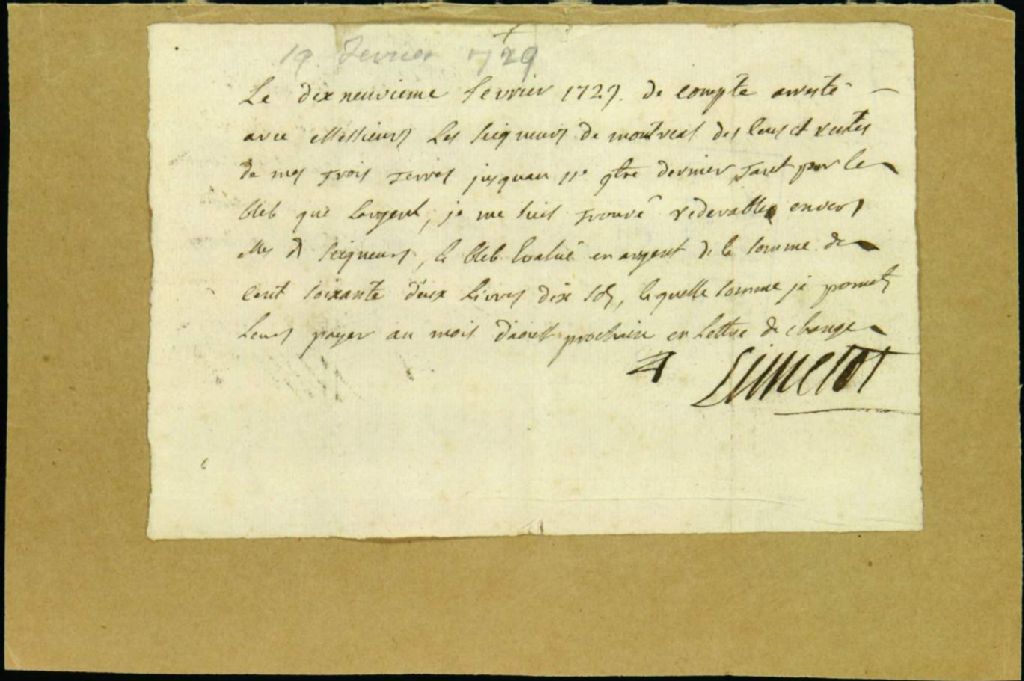 19 fevrier 1729
Le dix neuvieme fevrier 1729. de compte arresté
avec Messieurs Les seigneurs de montreal des cens et rentes
de mes trois terres jusquau 11e 9bre dernier, tant pour le
bled que L'argent, je me suis trouvé redevable envers
Mes d seigneurs, le bled Evalué en argent de la somme de
cent soixante deux Livres dix sols, laquelle somme je promets
Leurs payer au mois d'aoust prochain en Lettre de change